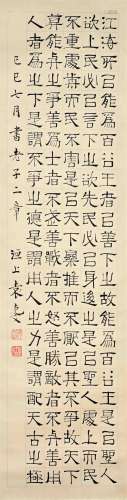 江海所㠯能為百谷王者㠯其善下之故能為百谷王是㠯聖人
欲上民必㠯言下之欲先民必㠯身後之是㠯聖人處上而民
不重處前而民不害是㠯天下樂推而不厭㠯其不爭故天下
莫能與之爭善為士者不武善戰者不怒善勝敵者不與善用
人者為之下是謂不爭之德是謂用人之力是謂配天古之極
己巳七月書老子二章 洹上袁